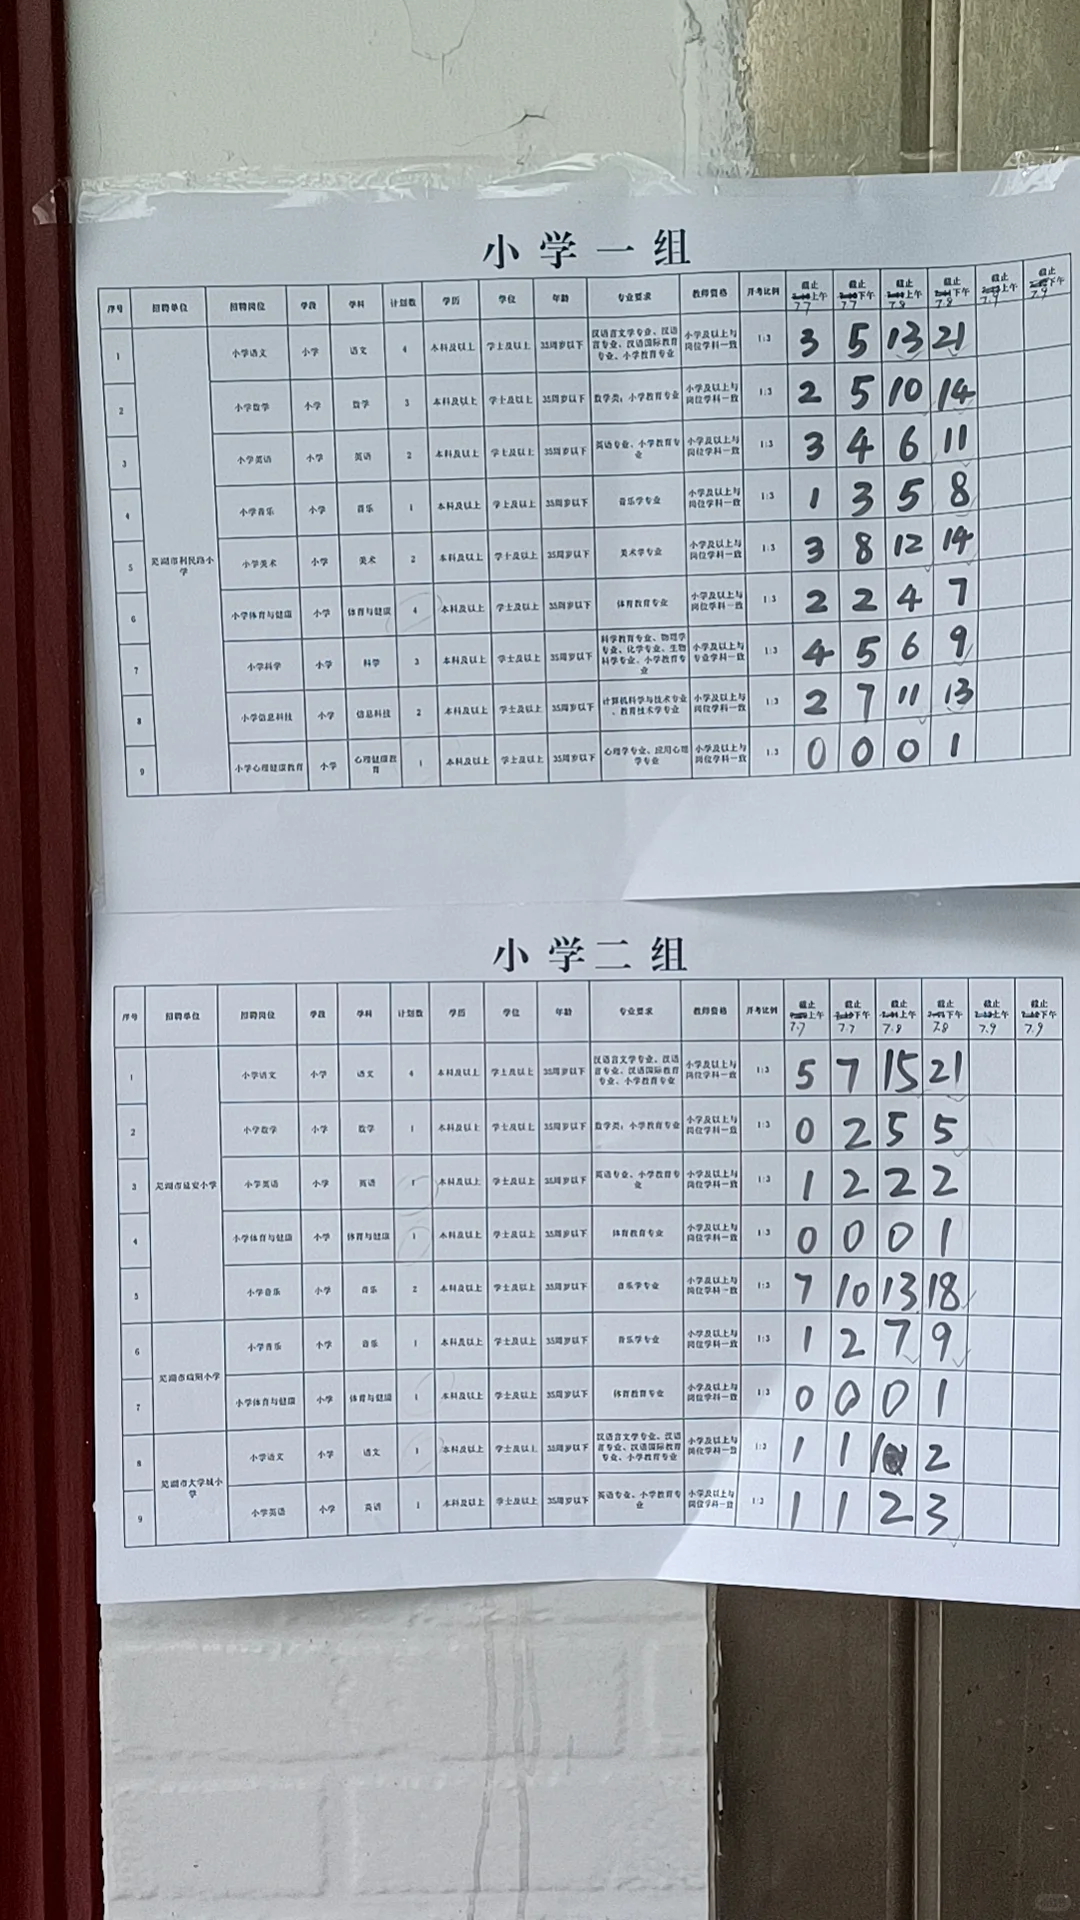 小学一组
序号 招聘单位 招聘岗位 学段 学科 计划数 学历 学位 年龄 专业要求 教师资格 开考比例 截止上午 7.7 截止下午 7.7 截止上午 7.8 截止下午 7.8 截止上午 7.9 截止下午 7.9
芜湖市利民路小学
1 小学语文 小学 语文 4 本科及以上 学士及以上 35周岁以下 汉语言文学专业、汉语言专业、汉语国际教育专业、小学教育专业 小学及以上与岗位学科一致 1:3 3 5 13 21
2 小学数学 小学 数学 3 本科及以上 学士及以上 35周岁以下 数学类；小学教育专业 小学及以上与岗位学科一致 1:3 2 5 10 14
3 小学英语 小学 英语 2 本科及以上 学士及以上 35周岁以下 英语专业、小学教育专业 小学及以上与岗位学科一致 1:3 3 4 6 11
4 小学音乐 小学 音乐 1 本科及以上 学士及以上 35周岁以下 音乐学专业 小学及以上与岗位学科一致 1:3 1 3 5 8
5 小学美术 小学 美术 2 本科及以上 学士及以上 35周岁以下 美术学专业 小学及以上与岗位学科一致 1:3 3 8 12 14
6 小学体育与健康 小学 体育与健康 4 本科及以上 学士及以上 35周岁以下 体育教育专业 小学及以上与岗位学科一致 1:3 2 2 4 7
7 小学科学 小学 科学 3 本科及以上 学士及以上 35周岁以下 科学教育专业、物理学专业、化学专业、生物科学专业、小学教育专业 小学及以上与专业学科一致 1:3 4 5 6 9
8 小学信息科技 小学 信息科技 2 本科及以上 学士及以上 35周岁以下 计算机科学与技术专业、教育技术学专业 小学及以上与岗位学科一致 1:3 2 7 11 13
9 小学心理健康教育 小学 心理健康教育 1 本科及以上 学士及以上 35周岁以下 心理学专业、应用心理学专业 小学及以上与岗位学科一致 1:3 0 0 0 1
小学二组
序号 招聘单位 招聘岗位 学段 学科 计划数 学历 学位 年龄 专业要求 教师资格 开考比例 截止上午 7.7 截止下午 7.7 截止上午 7.8 截止下午 7.8 截止上午 7.9 截止下午 7.9
芜湖市延安小学
1 小学语文 小学 语文 4 本科及以上 学士及以上 35周岁以下 汉语言文学专业、汉语言专业、汉语国际教育专业、小学教育专业 小学及以上与岗位学科一致 1:3 5 7 15 21
2 小学数学 小学 数学 1 本科及以上 学士及以上 35周岁以下 数学类；小学教育专业 小学及以上与岗位学科一致 1:3 0 2 5 5
3 小学英语 小学 英语 1 本科及以上 学士及以上 35周岁以下 英语专业、小学教育专业 小学及以上与岗位学科一致 1:3 1 2 2 2
4 小学体育与健康 小学 体育与健康 1 本科及以上 学士及以上 35周岁以下 体育教育专业 小学及以上与岗位学科一致 1:3 0 0 0 1
5 小学音乐 小学 音乐 2 本科及以上 学士及以上 35周岁以下 音乐学专业 小学及以上与岗位学科一致 1:3 7 10 13 18
6 小学音乐 小学 音乐 1 本科及以上 学士及以上 35周岁以下 音乐学专业 小学及以上与岗位学科一致 1:3 1 2 7 9
7 小学体育与健康 小学 体育与健康 1 本科及以上 学士及以上 35周岁以下 体育教育专业 小学及以上与岗位学科一致 1:3 0 0 0 1
芜湖市大学城小学
8 小学语文 小学 语文 1 本科及以上 学士及以上 35周岁以下 汉语言文学专业、汉语言专业、汉语国际教育专业、小学教育专业 小学及以上与岗位学科一致 1:3 1 1 1 2
9 小学英语 小学 英语 1 本科及以上 学士及以上 35周岁以下 英语专业、小学教育专业 小学及以上与岗位学科一致 1:3 1 1 2 3